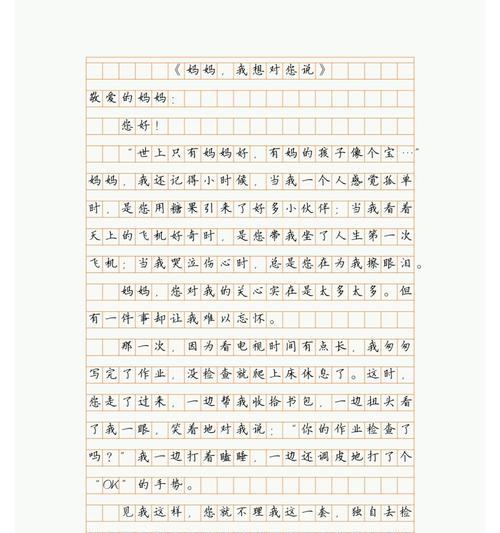 《妈妈，我想对您说》
敬爱的妈妈：
您好！
“世上只有妈妈好，有妈的孩子像个宝…”
妈妈，我还记得小时候，当我一个人感觉孤单
时，是您用糖果引来了好多小伙伴；当我看着
天上的飞机好奇时，是您带我坐了人生第一次
飞机；当我哭泣伤心时，总是您在为我擦眼泪。
妈妈，您对我的关心实在是太多太多。但
有一件事却让我难以忘怀。
那一次，因为看电视时间有点长，我匆匆
写完了作业，没检查就爬上床休息了。这时，
您走了过来，一边帮我收拾书包，一边扭头看
了我一眼，笑着地对我说：“你的作业检查了
吗？”我一边打着瞌睡，一边还调皮地打了个
“OK”的手势。
见我这样，您就不理我这一套，独自去检